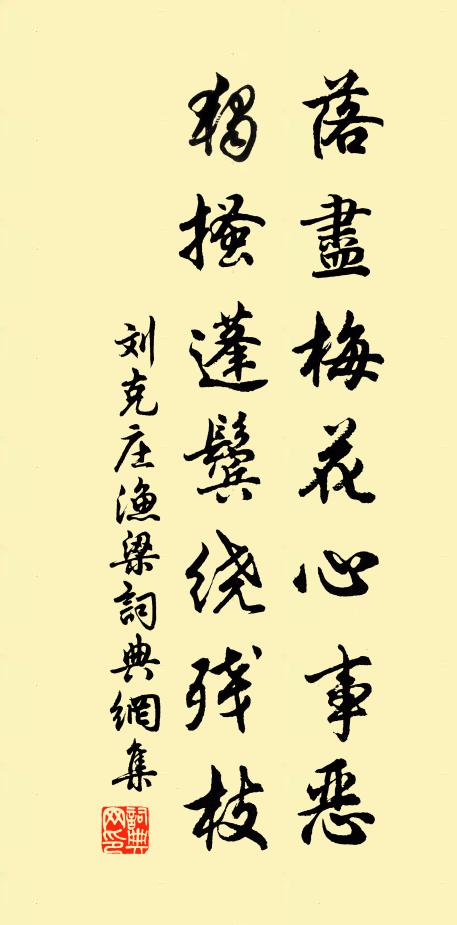 落盡梅花心事惡
獨搔蓬鬢绕残枝
刘克庄漁梁詞典網集
詞典網印